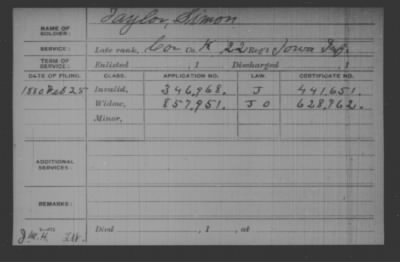 NAME OF SOLDIER: Taylor, Simon
SERVICE: Late rank, Cor Co. K, 22 Reg't Iowa Inf.
TERM OF SERVICE: Enlisted , 1 Discharged , 1
DATE OF FILING. CLASS. APPLICATION NO. LAW. CERTIFICATE NO.
1880 Feb 25 Invalid, 346,968. J 441,651.
Widow, 857,951. J O 628,862.
Minor,
ADDITIONAL SERVICES:
REMARKS:
Died , 1 , at
J.M.H.